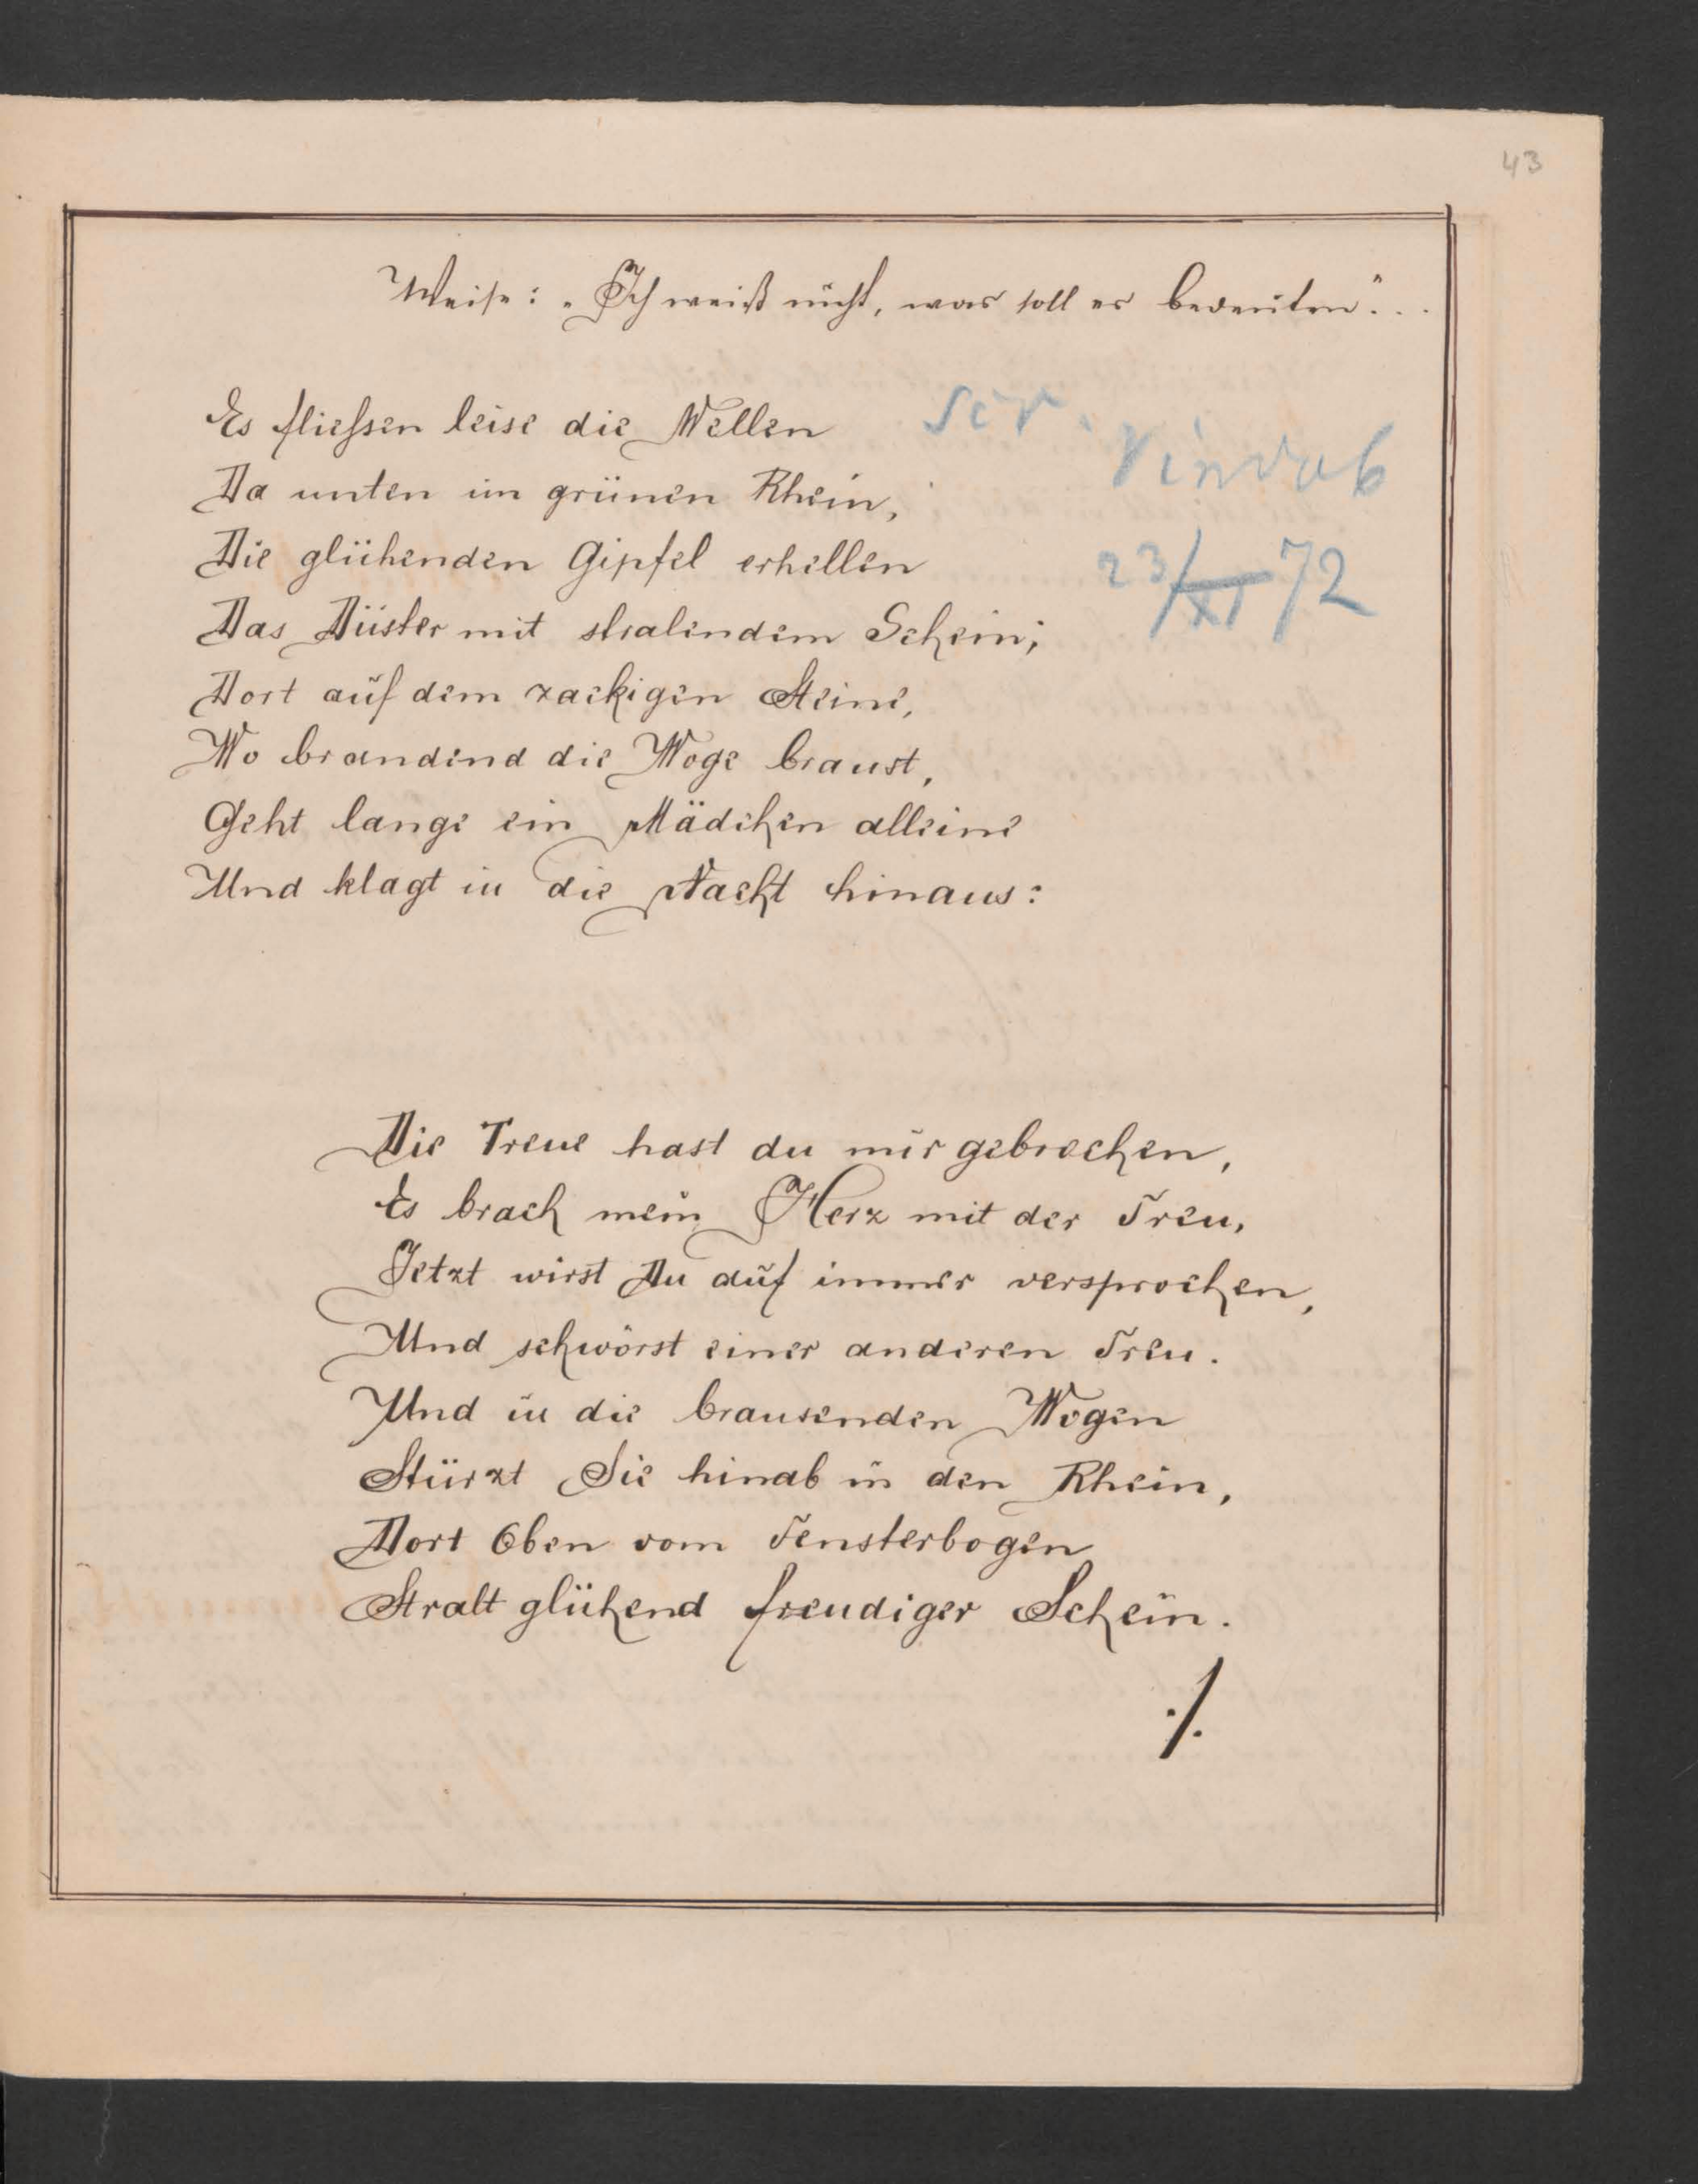 43
Weise: „Ich weiß nicht, was soll es bedeuten“...
Es fliessen leise die Wellen
scr. Vindob
Da unten im grünen Rhein,
Die glühenden Gipfel erhellen
23/XI 72
Das Düster mit stralendem Schein;
Dort auf dem zackigen Steine,
Wo brandend die Woge braust,
Geht lange ein Mädchen alleine
Und klagt in die Nacht hinaus:
Die Treue hast du mir gebrochen,
Es brach mein Herz mit der Treu,
Jetzt wirst Du auf immer versprochen,
Und schwörst einer anderen Treu.
Und in die brausenden Wogen
Stürzt Sie hinab in den Rhein,
Dort Oben vom Fensterbogen
Stralt glühend freudiger Schein.
./.